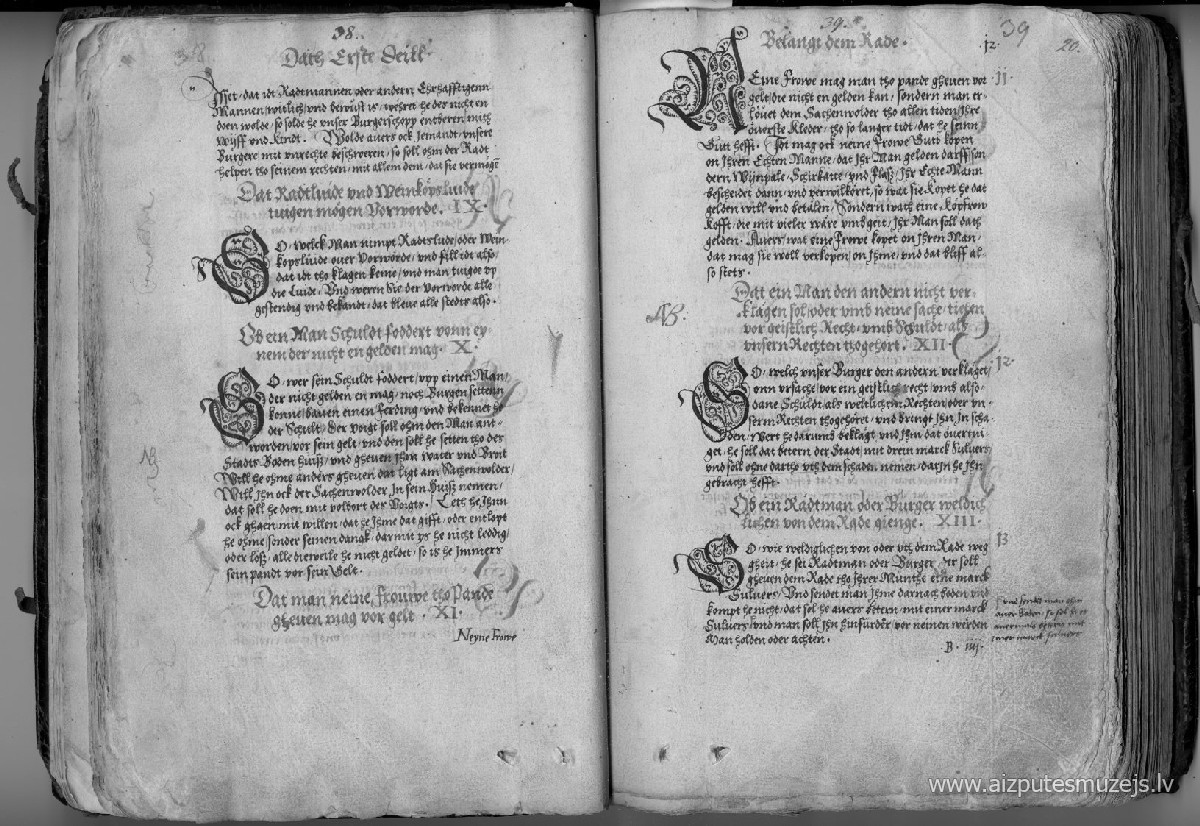 38.
Dath Erste Deill
isset, dat idt Radtmannen oder andern Ehrhafftigenn
Mannen witlich vnd bewust is, wehre he des nicht en
doen wolde, so solde he vnser Burgerschopp entberen, mith
Wyff vnd Kindt. Wolde auers ock jemandt, vnsere
Burgere mit vnrechte beschweren, so soll ohm der Radt
helpen tho seinem rechten, mit allem dem, dat sie vermögen
Dat Radtluide vnd Weinkopsluide
tuigen mögen Vorworde. IX.
8
SO welck Man nimpt Radtslude, oder Wein-
kopslude ouer Vorworde, vnd fill idt also,
dat idt tho klagen keme, vnd man tuigde vp
die Luide, Vnd weren sie der Vorworde alle
gestendig vnd bekandt, dat bleue alle stedts also.
Ob ein Man Schuldt foddert vonn ey-
nem der nicht en gelden mag. X.
SO wer sein Schuldt foddert, vpp einen Man,
der nicht gelden en mag, noch Burgen settenn
kenne, bauen einen ferding, vnd bekennet he
der Schult, der Voigt soll ohm den Man ant-
worden, vor sein gelt, vnd den soll he setten tho des
Stadts Boden huiss, vnd gheuen ihm water vnd Brot
Will he ohme anders gheuen dat ligt am Sachenwolder,
Will ihn ock der Sachenwolder, in sein huiss nemen,
dat soll he doen mit volbort des Voigts. Leth he ihnn
ock ghaen mit willen, dat he ihme dat gifft, oder entlopt
he ohme sonder seinen danck, darmit ys he nicht leddig
oder loss, alle dieweile he nicht geldet, so is he jmmers
sein pandt vor sein Gelt.
Dat man neine frouwe tho Pande
gheuen mag vor gelt. XI.
Neyne Frowe
39.
39
Belangt dem Rade.
12
20.
11
NEine Frowe mag man tho pande gheuen vor
gelt, die nicht en gelden kan, sondern man er-
louet dem Sachenwolder tho allen tiden, ihre
ouerste Kleder, tho so langer tidt, dat he seinn
Gutt hefft. Idt mag ock neine Frowe Gutt kopen
on ihren Echten Manne, dat ihr Man gelden darff, son
dern Wimpale, Schirkatte, vnd flass, ihr Echte Mann
bescheidet dann, vnd verwilköret, so wat sie kopet he dat
gelden will vnd betalen, Sondern wath eine Kopfrow
kofft, die mit vieler ware vmbgeit, ihr Man soll dath
gelden. Auers, wat eine Frowe kopet on ihren Man,
dat mag sie woll verkopen on ihme, vnd dat bliff al-
so stets.
Datt ein Man den andern nicht ver-
klagen sol, oder vmb neine sache tiehen
NB.
vor geistlich Recht, vmb Schuldt, als
vnsern Rechten thogehort. XII.
12.
SO welch vnser Burger den andern verklaget,
onn vrsache, vor ein geistlich recht, vmb also-
dane Schuldt, als weltlichem Rechten, oder vn-
serm Rechten thogehöret, vnd bringt ihn in scha-
den, Wert he darumb beklagt, vnd ihm dat ouertui-
get, he soll dat betern der Stadt mit drein marck Suluers,
vnd soll ohne dartho vth dem schaden nemen, dar in he ihn
gebracht hefft.
Ob ein Radtman oder Burger weldig-
lichen von dem Rade gienge. XIII.
13
SO wie weldiglichen von oder vth dem Rade weg
gheit, he sei Radtman oder Burger, der soll
gheuen dem Rade tho ihrer Munthe eine marck
Suluers, Vnd sendet man ihme darnach boden vnd
kompt he nicht, dat sol he auers betern mit einer marck
Suluers, vnd man soll ihn hinfurder vor neinen werden
Man holden oder achten.
B. iiij.
www.aizputesmuzejs.lv